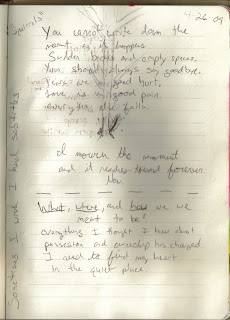 "Squirrels"
4-26-09
You cannot write down the
moment as it happens.
Sudden breaks and empty spaces.
You should always say goodbye.
hurt,
Love, is good pain.
everything else falls.
I mourn the moment
and it needs forever
What, where, and how we
meant to be?
everything I thought I knew about
possession and ownership has changed
I need to find my heart
In the quiet place.
Sometimes I wish I had subtitles